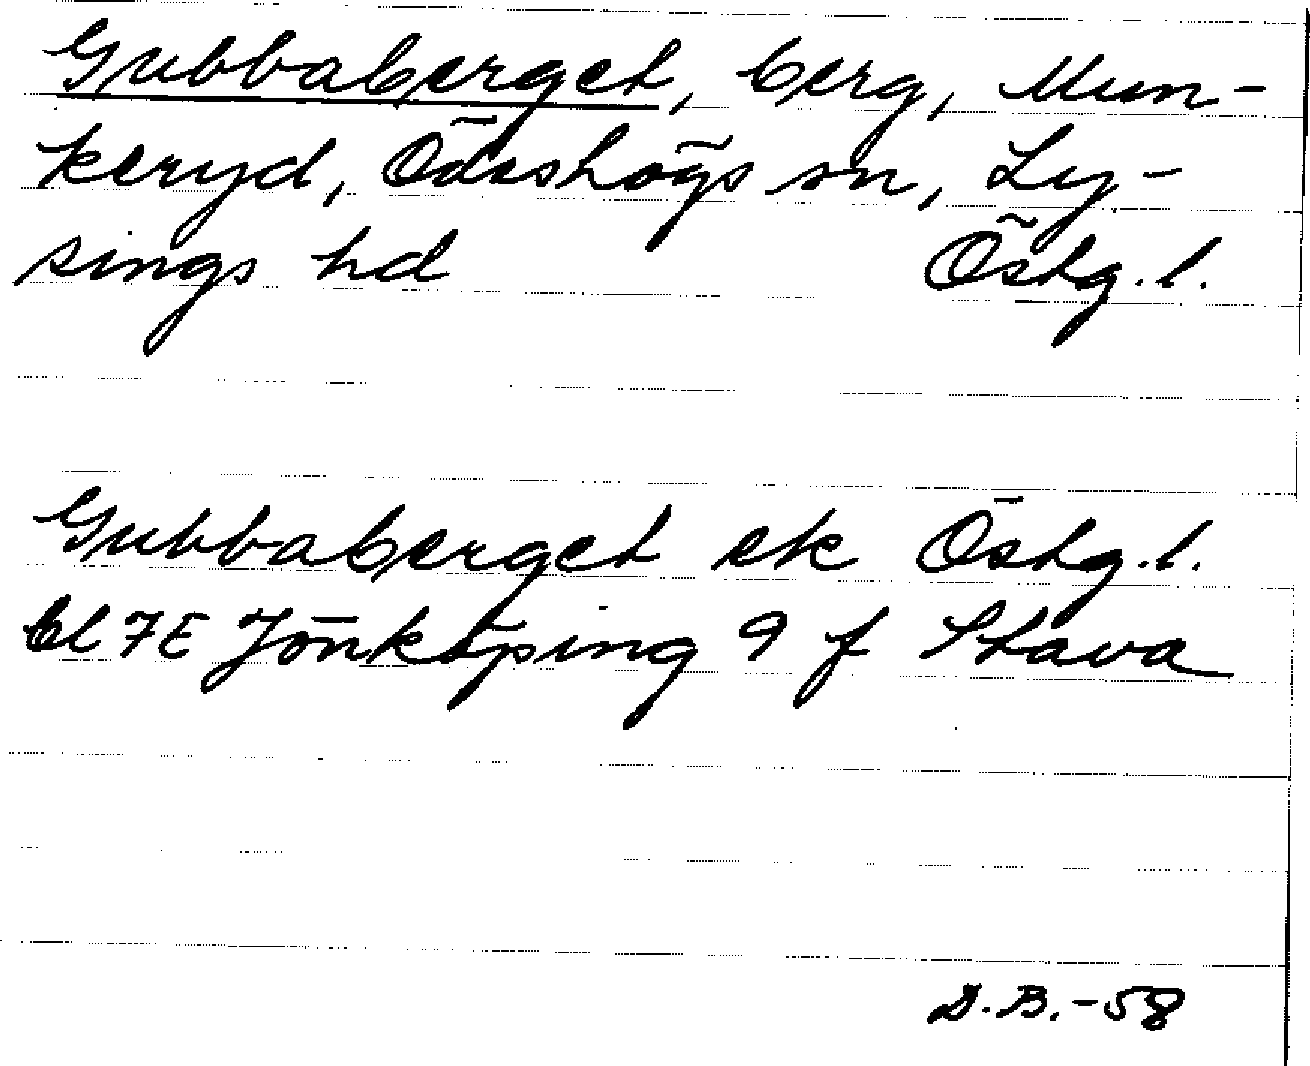 Gubbaberget, berg, Mun-
keryd, Ödeshögs sn, Ly-
sings hd Östg.l.
Gubbaberget ek Östg.l.
bl 7E Jönköping 9 f Stava
D.B.-58